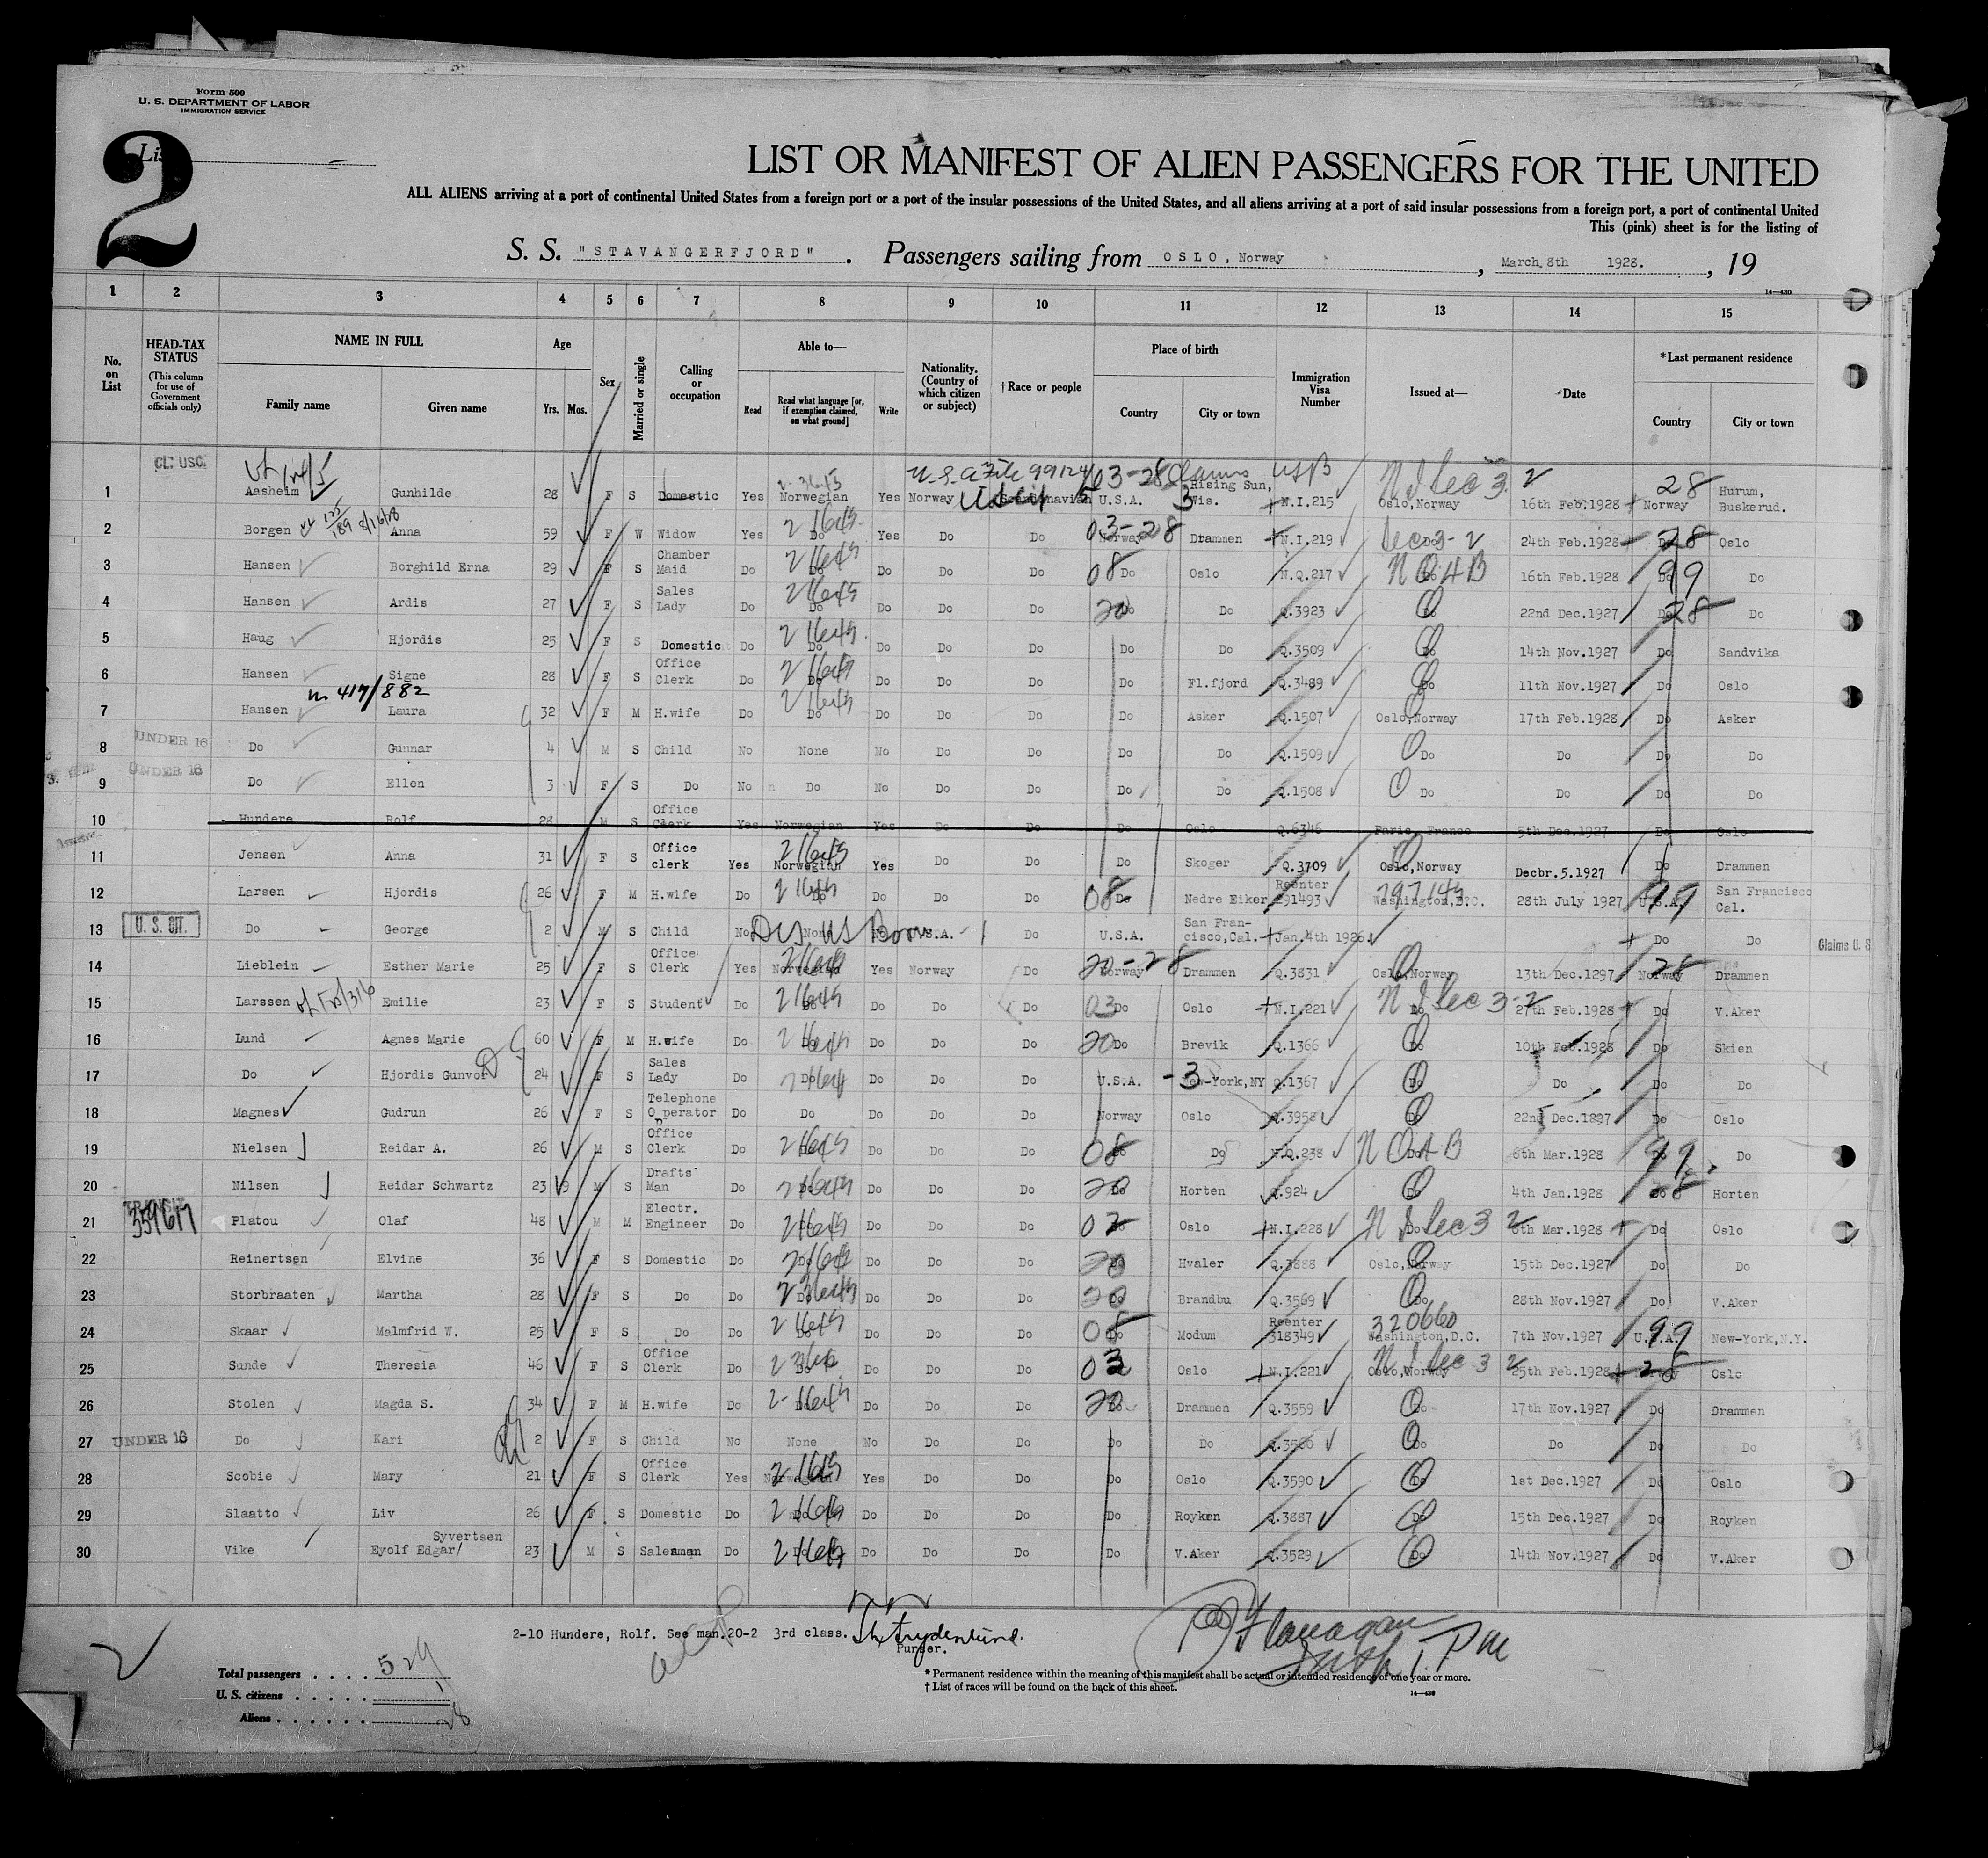 Form 500
U. S. DEPARTMENT OF LABOR
IMMIGRATION SERVICE
2
LIST OR MANIFEST OF ALIEN PASSENGERS FOR THE UNITED
ALL ALIENS arriving at a port of continental United States from a foreign port or a port of the insular possessions of the United States, and all aliens arriving at a port of said insular possessions from a foreign port, a port of continental United
This (pink) sheet is for the listing of
S. S. "STAVANGERFJORD". Passengers sailing from OSLO, Norway, March 8th 1928., 19
14—430
1 2 3 4 5 6 7 8 9 10 11 12 13 14 15
No. on List HEAD-TAX STATUS (This column for use of Government officials only) NAME IN FULL Family name Given name Age Yrs. Mos. Sex Married or single Calling or occupation Able to— Read Read what language [or, if exemption claimed, on what ground] Write Nationality. (Country of which citizen or subject) † Race or people Place of birth Country City or town Immigration Visa Number Issued at— Date *Last permanent residence Country City or town
1 Aasheim Gunhilde 28 F S Domestic Yes Norwegian Yes Norway Scandinavian U.S.A. Rising Sun, Wis. N.I.215 Oslo,Norway 16th Feb.1928 Norway Hurum, Buskerud.
2 Borgen Anna 59 F W Widow Yes Do Yes Do Do Norway Drammen N.I.219 Do 24th Feb.1928 Do Oslo
3 Hansen Borghild Erna 29 F S Chamber Maid Do Do Do Do Do Do Oslo N.Q.217 Do 16th Feb.1928 Do Do
4 Hansen Ardis 27 F S Sales Lady Do Do Do Do Do Do Do Q.3923 Do 22nd Dec.1927 Do Do
5 Haug Hjordis 25 F S Domestic Do Do Do Do Do Do Do Q.3509 Do 14th Nov.1927 Do Sandvika
6 Hansen Signe 28 F S Office Clerk Do Do Do Do Do Do Fl.fjord Q.3489 Do 11th Nov.1927 Do Oslo
7 Hansen Laura 32 F M H.wife Do Do Do Do Do Do Asker Q.1507 Oslo,Norway 17th Feb.1928 Do Asker
8 UNDER 16 Do Gunnar 4 M S Child No None No Do Do Do Do Q.1509 Do Do Do Do
9 UNDER 16 Do Ellen 3 F S Do No Do No Do Do Do Do Q.1508 Do Do Do Do
10 Hundere Rolf 28 M S Office Clerk Yes Norwegian Yes Do Do Do Oslo Q.6346 Paris, France 5th Dec.1927 Do Oslo
11 Jensen Anna 31 F S Office clerk Yes Norwegian Yes Do Do Do Skoger Q.3709 Oslo,Norway Decbr.5.1927 Do Drammen
12 Larsen Hjordis 26 F M H.wife Do Do Do Do Do Do Nedre Eiker Reenter 291493 Washington,D.C. 28th July 1927 U.S.A. San Francisco Cal.
13 U. S. CIT. Do George 2 M S Child No None No U.S.A. Do U.S.A. San Francisco,Cal. Jan.4th 1926. Do Do Claims U. S
14 Lieblein Esther Marie 25 F S Office Clerk Yes Norwegian Yes Norway Do Norway Drammen Q.3831 Oslo,Norway 13th Dec.1297 Norway Drammen
15 Larssen Emilie 23 F S Student Do Do Do Do Do Do Oslo N.I.221 Do 27th Feb.1928 Do V.Aker
16 Lund Agnes Marie 60 F M H.wife Do Do Do Do Do Do Brevik Q.1366 Do 10th Feb.1928 Do Skien
17 Do Hjordis Gunvor 24 F S Sales Lady Do Do Do Do Do U.S.A. New-York,NY Q.1367 Do Do Do Do
18 Magnes Gudrun 26 F S Telephone Operator Do Do Do Do Do Norway Oslo Q.3958 Do 22nd Dec.1897 Do Oslo
19 Nielsen Reidar A. 26 M S Office Clerk Do Do Do Do Do Do Do N.Q.238 Do 6th Mar.1928 Do Do
20 Nilsen Reidar Schwartz 23 9 M S Drafts Man Do Do Do Do Do Do Horten Q.924 Do 4th Jan.1928 Do Horten
21 TRANSIT Platou Olaf 48 M M Electr. Engineer Do Do Do Do Do Do Oslo N.I.228 Do 6th Mar.1928 Do Oslo
22 Reinertsen Elvine 36 F S Domestic Do Do Do Do Do Do Hvaler Q.3888 Oslo,Norway 15th Dec.1927 Do Do
23 Storbraaten Martha 28 F S Do Do Do Do Do Do Do Brandbu Q.3569 Do 28th Nov.1927 Do V.Aker
24 Skaar Malmfrid W. 25 F S Do Do Do Do Do Do Do Modum Reenter 318349 320660 Washington,D.C. 7th Nov.1927 U.S.A. New-York,N.Y.
25 Sunde Theresia 46 F S Office Clerk Do Do Do Do Do Do Oslo N.I.221 Oslo,Norway 25th Feb.1928 Norway Oslo
26 Stolen Magda S. 34 F M H.wife Do Do Do Do Do Do Drammen Q.3559 Do 17th Nov.1927 Do Drammen
27 UNDER 16 Do Kari 2 F S Child No None No Do Do Do Do Do Do Do Do
28 Scobie Mary 21 F S Office Clerk Yes Norwegian Yes Do Do Do Oslo Q.3590 Do 1st Dec.1927 Do Oslo
29 Slaatto Liv 26 F S Domestic Do Do Do Do Do Do Royken Q.3887 Do 15th Dec.1927 Do Royken
30 Vike Eyolf Edgar/ Syvertsen 23 M S Salesman Do Do Do Do Do Do V.Aker Q.3529 Do 14th Nov.1927 Do V.Aker
2-10 Hundere, Rolf. See man.20-2 3rd class.
Purser.
Total passengers . . . .
U. S. citizens . . . . .
Aliens . . . . . . 28
* Permanent residence within the meaning of this manifest shall be actual or intended residence of one year or more.
† List of races will be found on the back of this sheet.
14—430